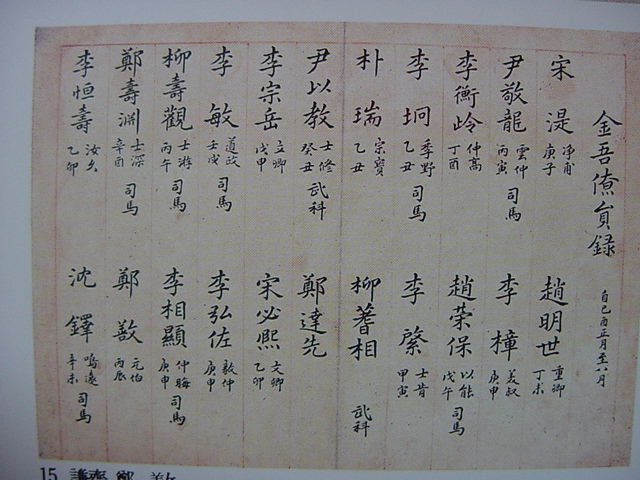 金吾僚員錄
自己酉正月至六月
宋湜 淨甫 庚子
尹敬龍 雲仲 丙寅 司馬
李衡岭 仲高 丁酉
李坰 季野 乙丑 司馬
朴瑞 宗寶 乙丑
尹以教 士修 癸丑 武科
李宗岳 立卿 戊申
李敏 道政 壬戌 司馬
柳壽觀 士游 丙午 司馬
鄭壽淵 士深 辛酉 司馬
李恒壽 汝久 乙卯
趙明世 重卿 丁未
李樟 美叔 庚申
趙荣保 以能 戊午 司馬
李棨 士肯 甲寅
柳蓍相 武科
鄭達先
宋必熙 文卿 乙卯
李弘佐 毅仲 庚申
李相顯 仲晦 庚申 司馬
鄭敾 元伯 丙辰
沈鐸 鳴遠 辛未 司馬
15